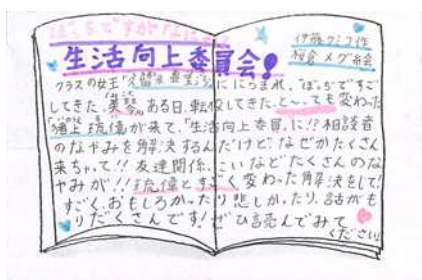 ぼっちですがなにか?
生活向上委員会!
伊藤クミコ作
桜倉メグ絵
クラスの女王ににらまれ、"ぼっち"ですご
してきた、美琴。ある日、転校してきた、と〜っても変わった
猪上琉偉が来て、「生活向上委員」に!?相談者
のなやみを解決するんだけど、なぜかたくさん
来ちゃって!!友達関係、こいなどたくさんのな
やみが!!琉偉とすごく変わった解決をして!
すごく、おもしろかったり悲しかったり、話がも
りだくさんです!ぜひ読んでみて
ください